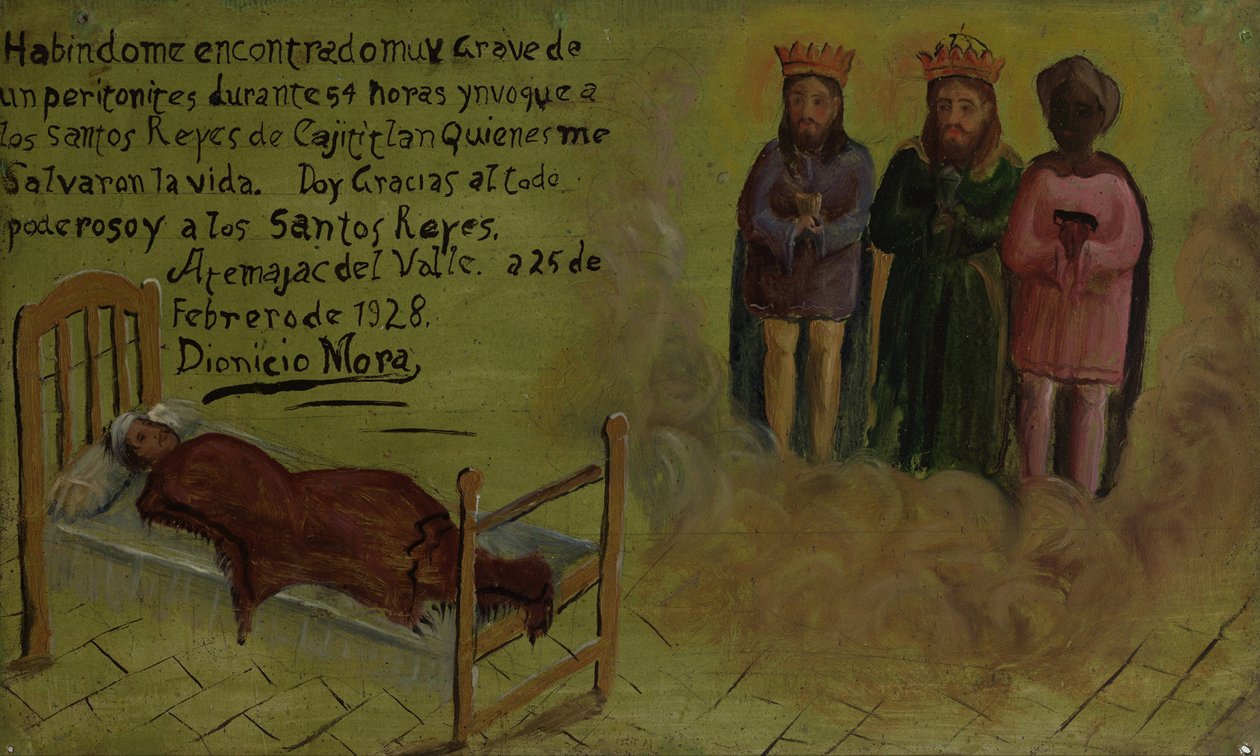 Habindome encontrado muy Grave de
un peritonites durante 54 horas ynvoque a
los santos Reyes de Cajititlan Quienes me
Salvaron la vida. Doy Gracias al todo
poderoso y a los Santos Reyes.
Atemajac del Valle. a 25 de
Febrero de 1928.
Dionicio Mora,